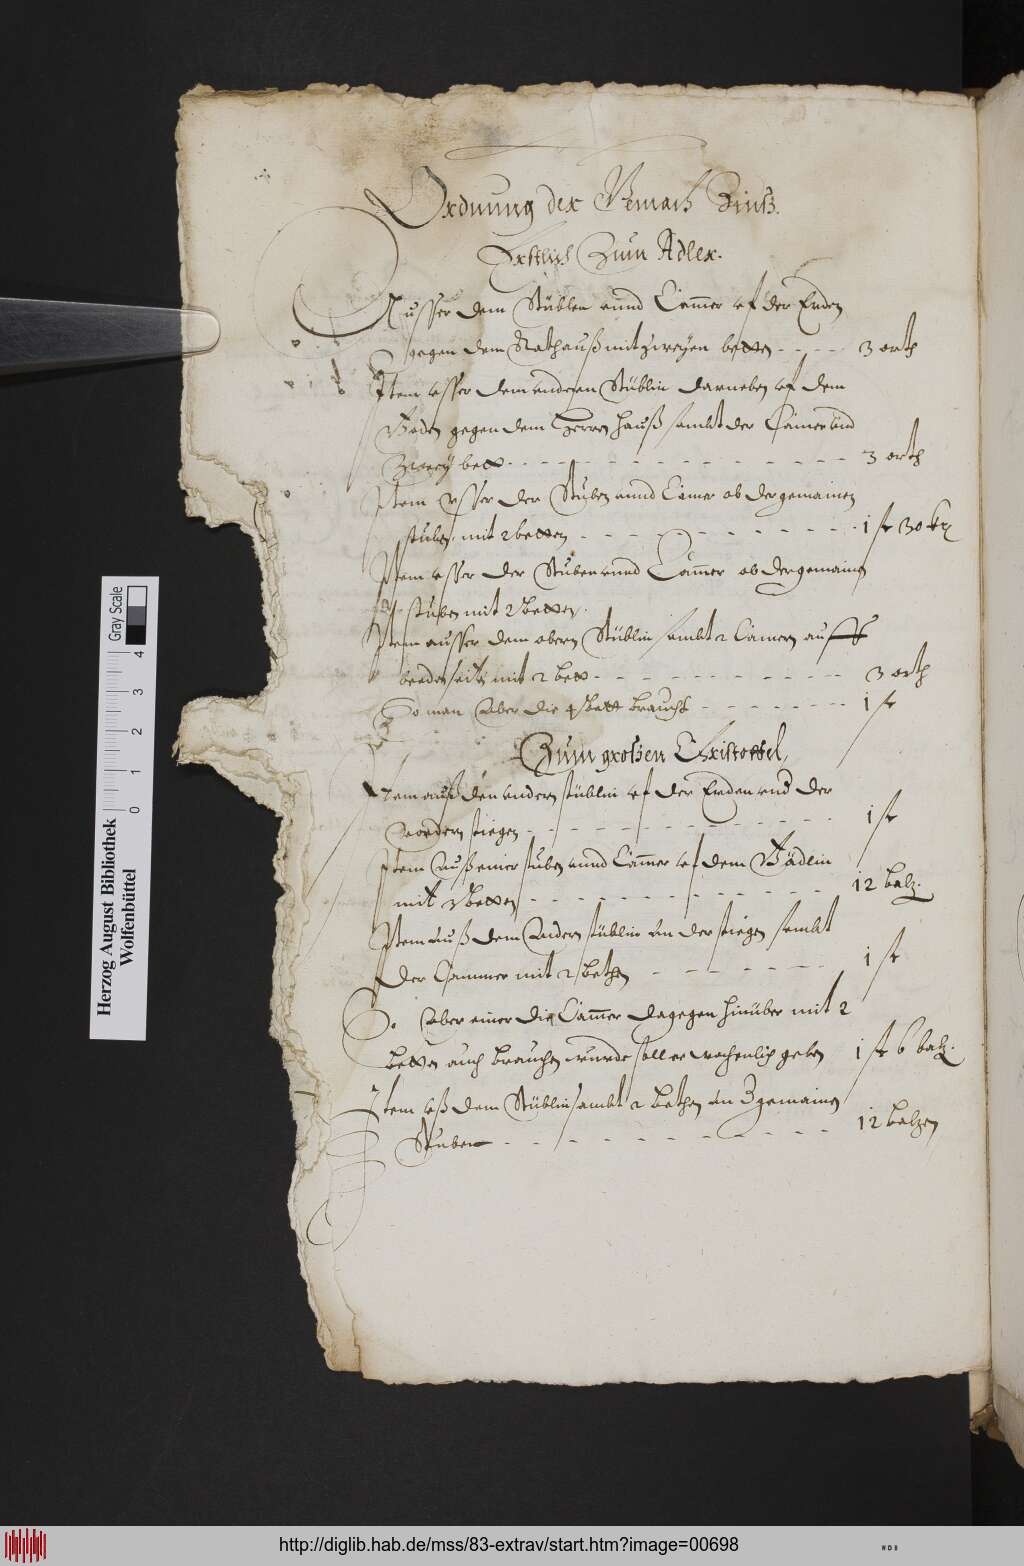 Ordnung der Gemach Zinß.
Erstlich Zum Adler.
Ausser dem Stüblen unnd Cammer uf der Erden
gegen dem Rathauß mit zweyen betten - - - - 3 orth
Item usser dem andern Stüblin darneben uf dem
Boden gegen dem Herren hauß sambt der Camer und
Zwey bett - - - - 3 orth
Item usser der Stuben unnd Camer ob der gemainen
stuben mit 2 betten - - - - 1 fr 30 kr
Item usser der Stuben unnd Cammer ob der gemainen
stuben mit 2 betten.
Item ausser dem obern Stüblin sambt 2 Camern auff
beeden seiten mit 2 bett - - - - 3 orth
So man aber die 4 Bett braucht - - - - 1 fr
Zum grossen Christoffel,
Item auß den andern stüblin uf der Erden und der
vordern stiegen - - - - 1 fr
Item auß einer stuben unnd Cammer uf dem Bödlin
mit betten - - - - 12 batz.
Item auß dem Andern stüblin an der stiegen sambt
der Cammer mit 2 bethen - - - - 1 fr
So Aber einer die Cammer dagegen hinüber mit 2
betten auch brauchen wurde soll er wochenlich geben 1 fr 6 batz.
Item auß dem Stüblin sambt 2 bethen an gemainen
Stuben - - - - 12 batzen
Herzog August Bibliothek
Wolfenbüttel
0 1 2 3 4
Gray Scale
http://diglib.hab.de/mss/83-extrav/start.htm?image=00698